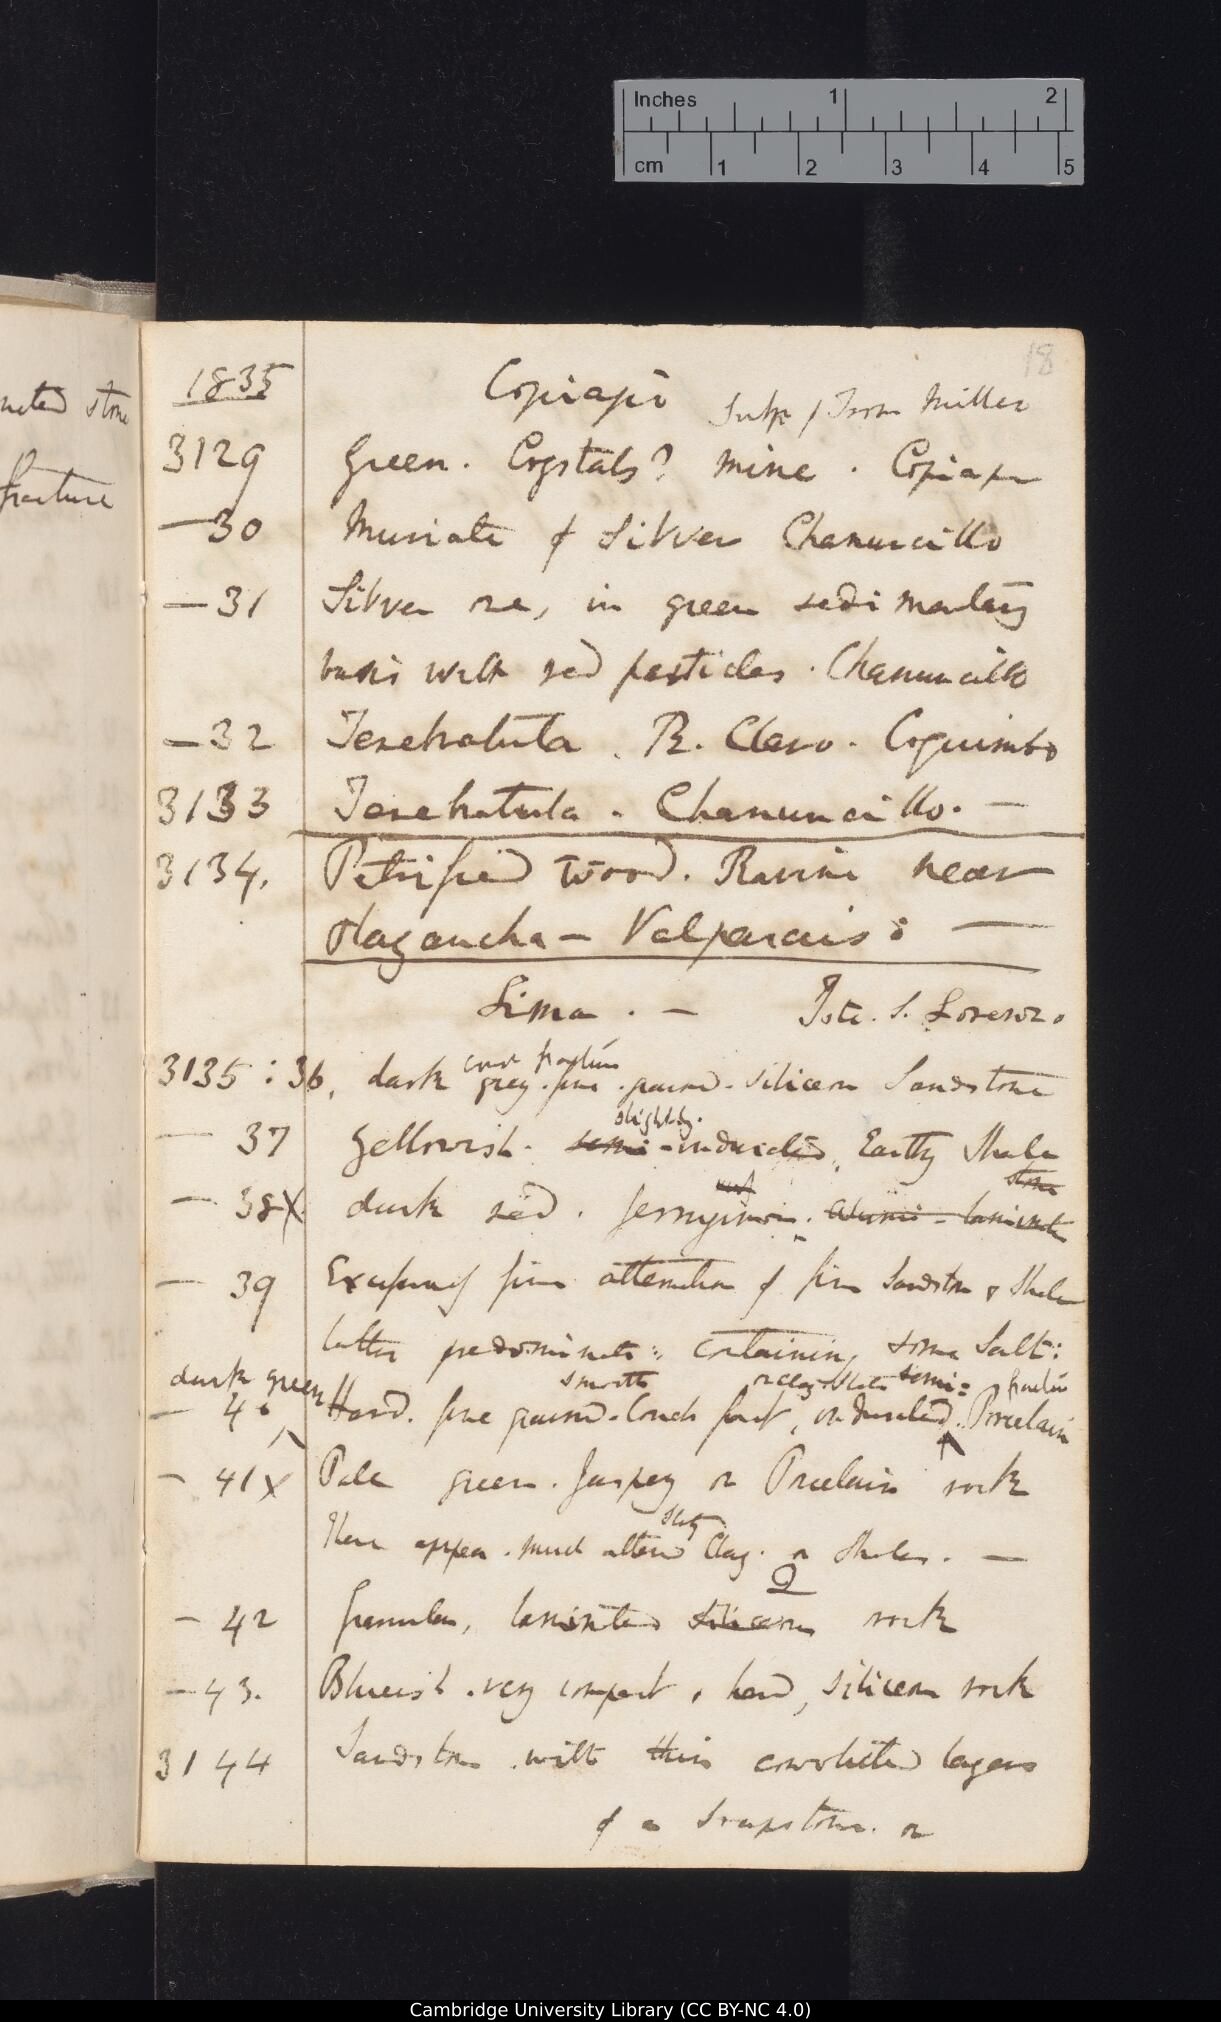 Inches 1 2
cm 1 2 3 4 5
18
1835 Copiapò
Sulp / Iron Miller
3129 Green. Crystals? mine. Copiapo
— 30 Muriate of Silver Chanuncillo
— 31 Silver ore, in green sedimentary
basis with red particles. Chanuncillo
— 32 Terebratula. R. Claro. Coquimbo
3133 Terebratula. Chanuncillo. —
3134. Petrified wood. Ravine near
Plagancha — Valparaiso: —
Lima. — Isld. S. Lorenzo
fracture
3135:36, dark grey. fine. grained. siliceous Sandstone
slightly.
— 37 Yellowish. semi-indurated, Earthy Shale
stone
— 38X dark red. ferruginous. laminated
— 39 Excessively fine alternation of fine Sandstone & Shale
latter predominates: containing some Salt:
dark green smooth or Clay Slate semi: fracture
— 40 Hard. fine grained. Conch fract, indurated. Porcelain
— 41X Pale green. Jaspery or Porcelain rock
slaty
These appear. much altered Clay. or Shales. —
— 42 Granular, laminated siliceous rock
— 43. Blueish. very compact, hard, siliceous rock
3144 Sandstone. with thin convoluted layers
of a Soapstone. or
nated stone
fracture
Cambridge University Library (CC BY-NC 4.0)